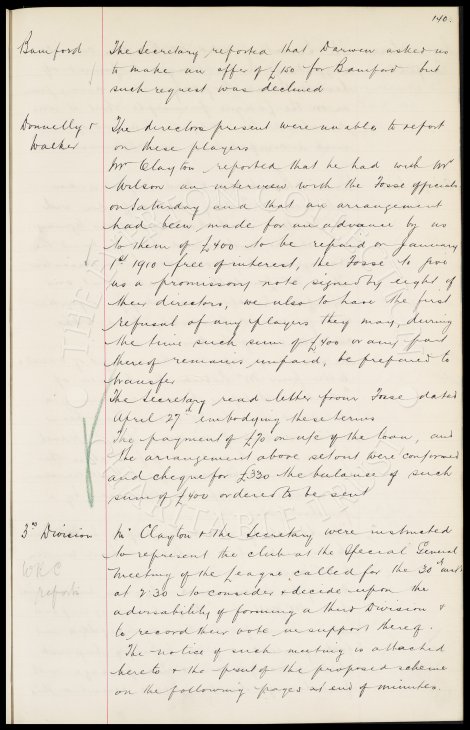 140.
Bamford
The Secretary reported that Darwen asked us
to make an offer of £150 for Bamford but
such request was declined
Donnelly &
Walker
The directors present were unable to report
on these players
Mr Clayton reported that he had with Mr
Wilson an interview with the Fosse officials
on Saturday and that an arrangement
had been made for an advance by us
to them of £400 to be repaid on January
1st 1910 free of interest, the Fosse to give
us a promissory note signed by eight of
their directors, we also to have the first
refusal of any players they may, during
the time such sum of £400 or any part
thereof remains unpaid, be prepared to
transfer
The Secretary read letter from Fosse dated
April 27th embodying these terms
The payment of £70 on a/c of the loan, and
the arrangement above set out were confirmed
and cheque for £330 the balance of such
sum of £400 ordered to be sent
3rd Division
Mr Clayton & the Secretary were instructed
to represent the club at the Special General
Meeting of the League called for the 30th
at 2.30 to consider & decide upon the
advisability of forming a third Division &
to record their vote in support thereof.
The notice of such meeting is attached
hereto & the print of the proposed scheme
on the following pages at end of minutes.
reports